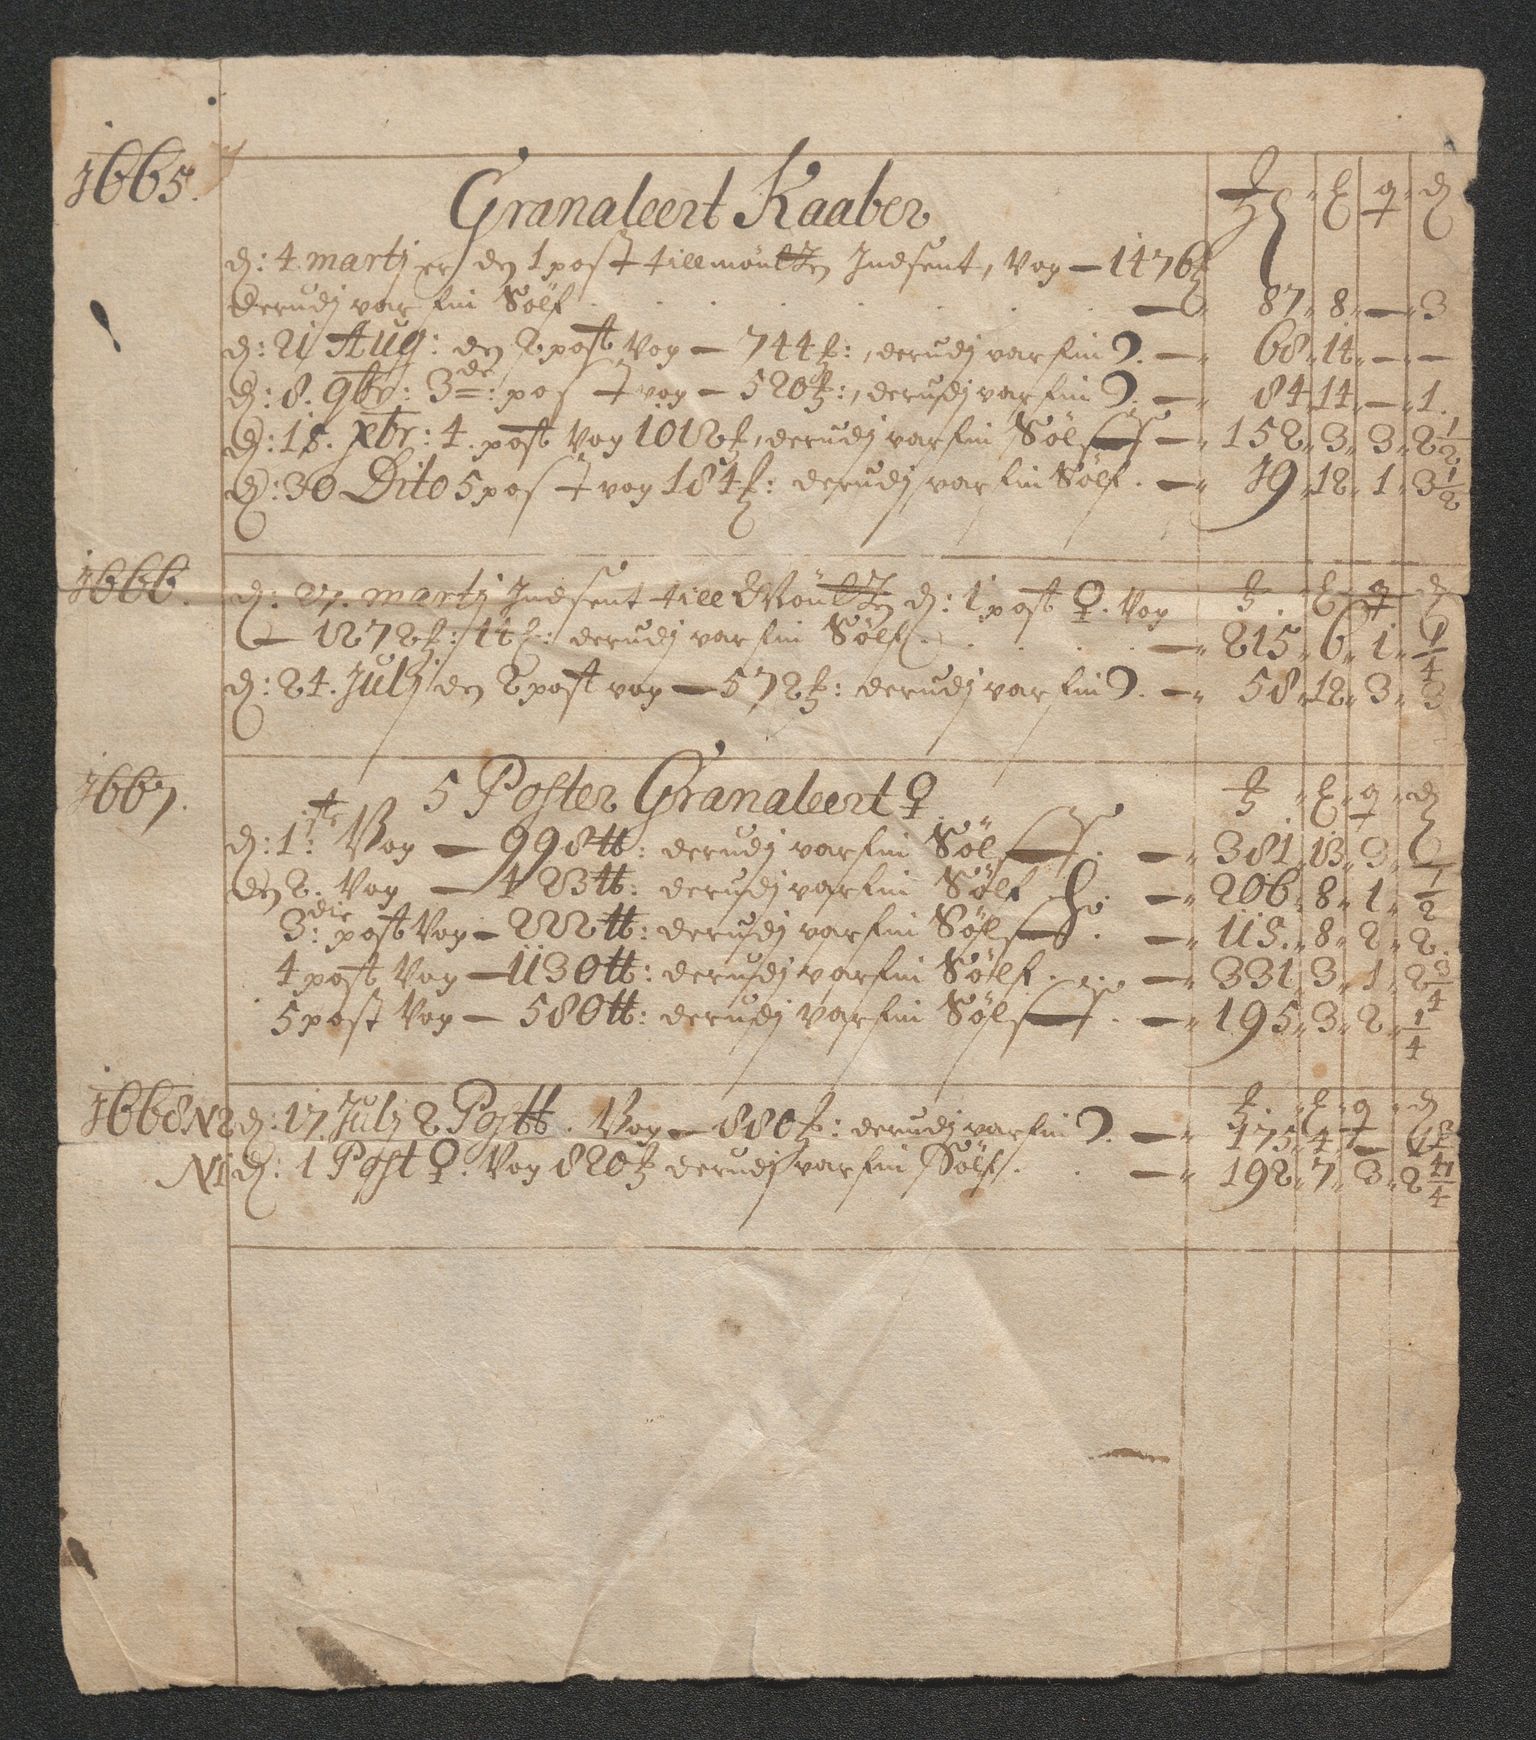 1665.
Granaleert Kaaber
d: 4 martj er den 1 post till mönten Indsent, Vog — 1476
derudj var fin Sölf — 87 " 8 " — " 3
d: 21 Aug: den 2. post Vog — 744 , derudj var fin ☽. — " 68 " 14 " — " —
d: 8. 9br: 3de: post vog — 520 , derudj var fin ☽. — " 84 " 14 " — " 1.
d: 18. xbr: 4. post Vog 1012 , derudj var fin Sölf — " 152 " 3 " 3 " 2 1/2
d: 30 Dito 5 post vog 184 : derudj var fin Sölf. — " 19 " 12 " 1 " 3 1/2
1666.
d: 27. martj Indsent till Mönten d: 1 post ♀. Vog
— 1272 : derudj var fin Sölf. — " 215 " 6 " 1 " 1/4
d: 24. Julj den 2 post vog — 572 : derudj var fin ☽. — " 58 " 12 " 3 " 3
1667.
5 Poster Granaleert ♀
d: 1ste: Vog — 998 ℔: derudj var fin Sölf. — " 381 " 13 " 3 "
den 2. Vog — 423 ℔: derudj var fin Sölf — " 206 " 8 " 1 " 1/2
3die: post Vog — 222 ℔: derudj var fin Sölf. — " 115. " 8 " 2 " 2.
4 post Vog — 1130 ℔: derudj var fin Sölf. — " 331 " 3 " 1 " 2 3/4
5 post Vog — 580 ℔: derudj var fin Sölf. — " 195 " 3 " 2 " 1/4
1668
N2 d: 17. Julj 2 Post. Vog — 880 : derudj var fin ☽. — " 175 " 4 " —
N1 d: 1 Post ♀. Vog 820 derudj var fin Sölf. — " 192 " 7 " 3 " 2 1/4